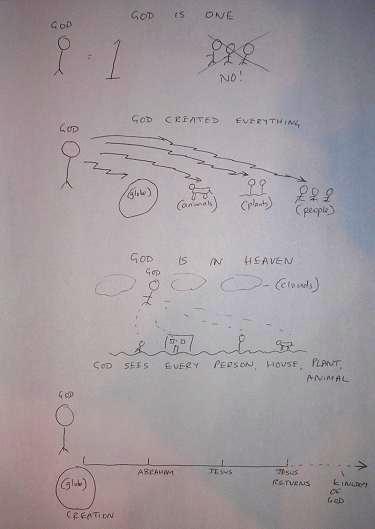 GOD IS ONE
GOD
= 1
NO!
GOD CREATED EVERYTHING
GOD
(globe)
(animals)
(plants)
(people)
GOD IS IN HEAVEN
GOD
(clouds)
GOD SEES EVERY PERSON, HOUSE, PLANT,
ANIMAL
GOD
(globe)
CREATION
ABRAHAM
JESUS
JESUS
RETURNS
KINGDOM
OF
GOD